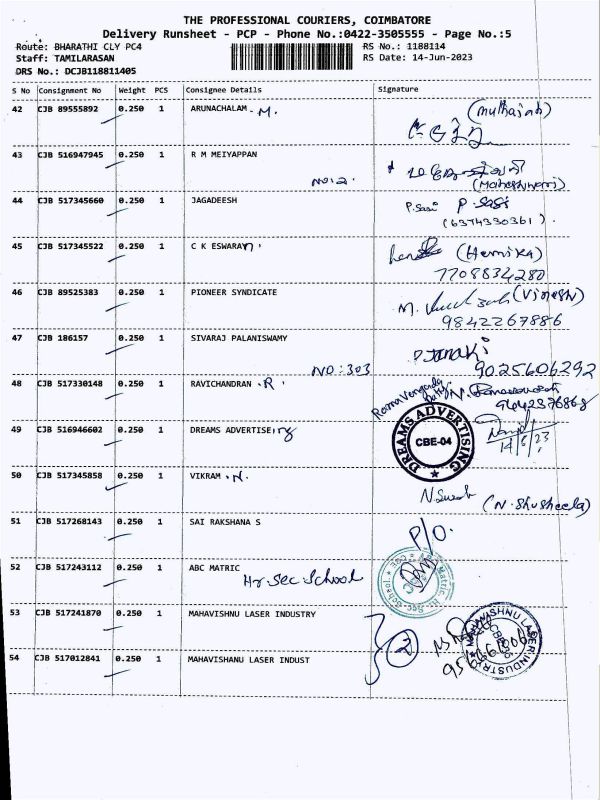 THE PROFESSIONAL COURIERS, COIMBATORE
Delivery Runsheet - PCP - Phone No.:0422-3505555 - Page No.:5
Route: BHARATHI CLY PC4
RS No.: 1188114
Staff: TAMILARASAN
RS Date: 14-Jun-2023
DRS No.: DCJB118811405
S No Consignment No Weight PCS Consignee Details Signature
42 CJB 89555892 0.250 1 ARUNACHALAM . M. (Muthaiah)
43 CJB 516947945 0.250 1 R M MEIYAPPAN
NO:2. (Maheshwari)
44 CJB 517345660 0.250 1 JAGADEESH P. Sasi P. Sasi
(6374330361).
45 CJB 517345522 0.250 1 C K ESWARAN. (Hernika)
7708834280
46 CJB 89525383 0.250 1 PIONEER SYNDICATE (Vignesh)
9842267886
47 CJB 186157 0.250 1 SIVARAJ PALANISWAMY P. Janaki
NO:303 9025606292
48 CJB 517330148 0.250 1 RAVICHANDRAN . R.
49 CJB 516946602 0.250 1 DREAMS ADVERTISEing DREAMS ADVERTISING CBE-04 14/6/23
50 CJB 517345858 0.250 1 VIKRAM . N.
(N. Shusheela)
51 CJB 517268143 0.250 1 SAI RAKSHANA S P/O.
52 CJB 517243112 0.250 1 ABC MATRIC
Hr Sec School
53 CJB 517241870 0.250 1 MAHAVISHNU LASER INDUSTRY
2 MAHAVISHNU LASER INDUSTRY
54 CJB 517012841 0.250 1 MAHAVISHANU LASER INDUST